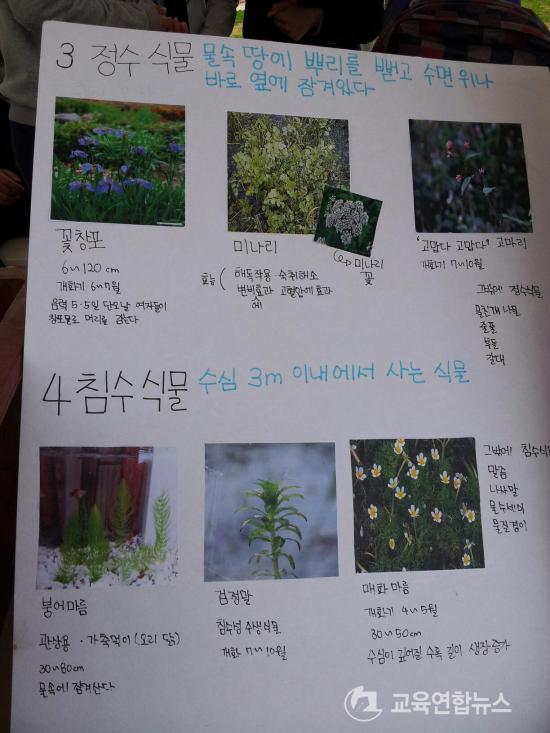 3 정수 식물 물속 땅에 뿌리를 뻗고 수면 위나
바로 옆에 잠겨있다
꽃창포
6~120cm
개화기 6~7월
음력 5·5일 단오날 여자들이
창포물로 머리를 감는다
미나리
효능 ( 해독작용·숙취해소
변비효과 고혈압에 효과
에
미나리
꽃
'고맙다 고맙다' 고마리
개화기 7~10월
그밖에 정수식물
물잔개나물
줄풀
부들
갈대
4 침수 식물 수심 3m 이내에서 사는 식물
붕어마름
관상용·가축먹이 (오리 닭)
30~80cm
물속에 잠겨산다
검정말
침수성 수생식물
개화 7~10월
매화마름
개화기 4~5월
30~50cm
수심이 깊어질 수록 길이 생장 증가
그밖에 침수식
말즘
나사말
물수세미
물질경이
교육연합뉴스